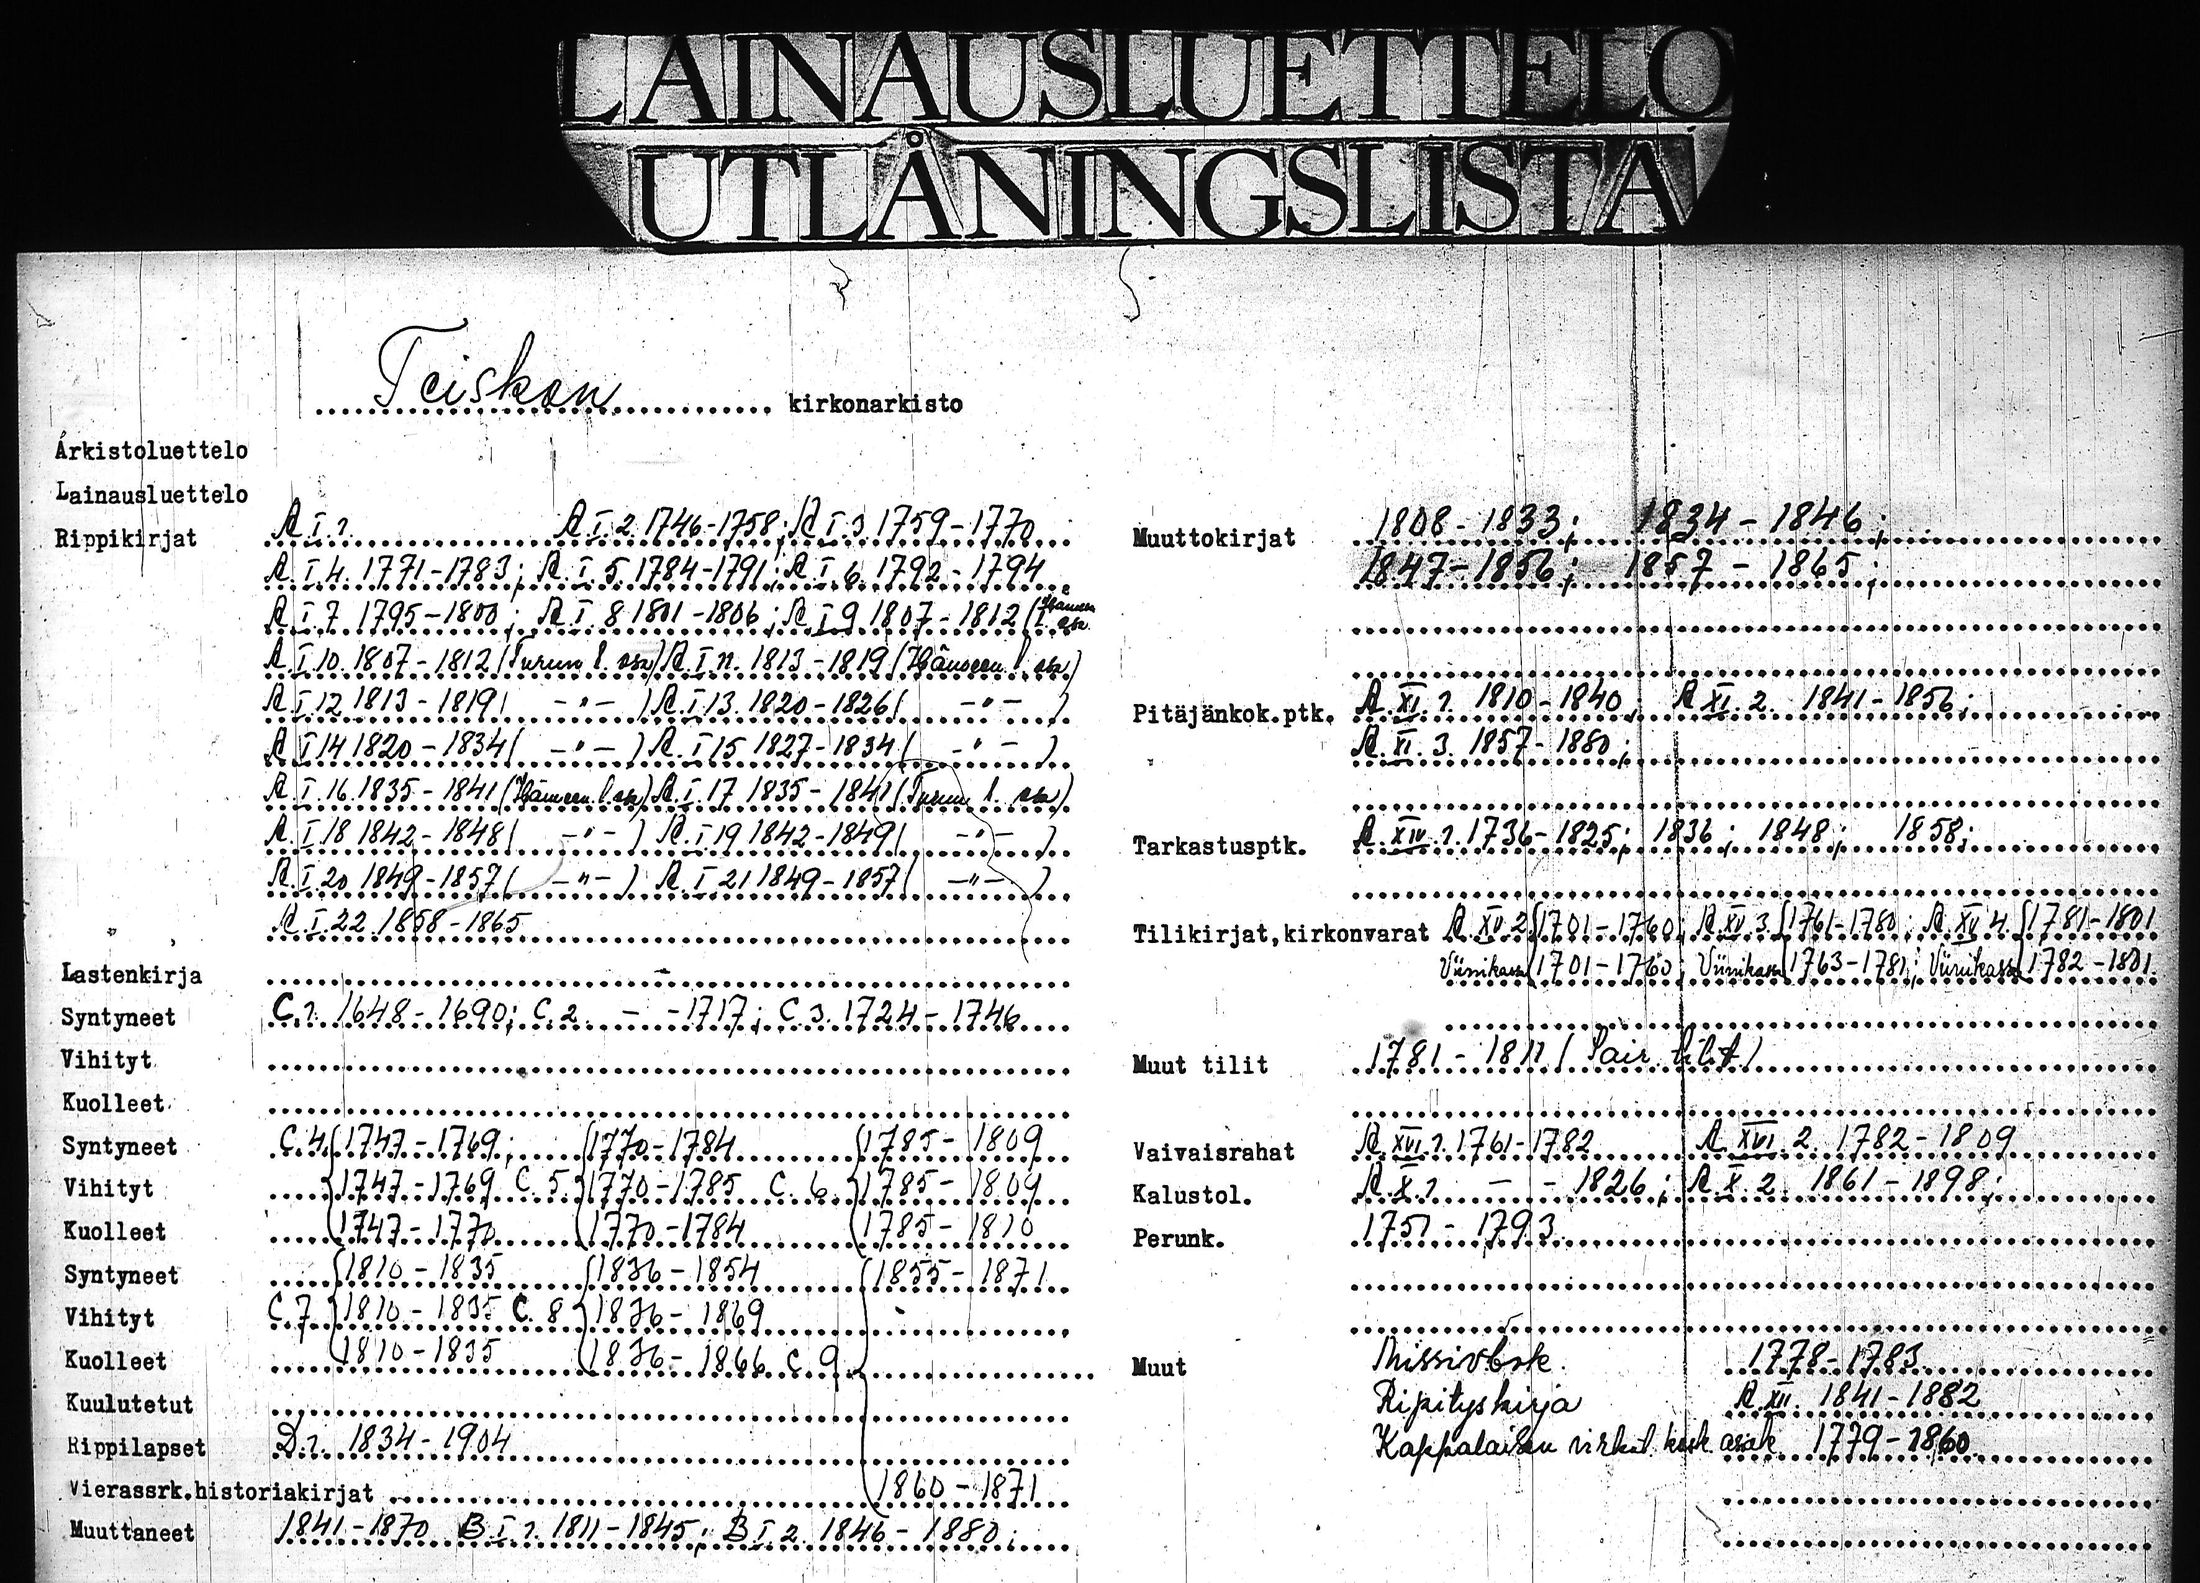 LAINAUSLUETTELO
UTLÅNINGSLISTA
Teiskon kirkonarkisto
Arkistoluettelo
Lainausluettelo
Rippikirjat A.I.1. A.I.2. 1746-1758; A.I.3. 1759-1770
A.I.4. 1771-1783; A.I.5. 1784-1791; A.I.6. 1792-1794
A.I.7 1795-1800; A.I.8 1801-1806; A.I.9 1807-1812 (Hämeen l. osa
A.I.10. 1807-1812 (Turun l. osa) A.I.11. 1813-1819 (Hämeen l. osa)
A.I.12 1813-1819 ( -"- ) A.I.13. 1820-1826 ( -"- )
A.I.14 1820-1834 ( -"- ) A.I.15 1827-1834 ( -"- )
A.I.16. 1835-1841 (Hämeen l. osa) A.I.17 1835-1841 (Turun l. osa)
A.I.18 1842-1848 ( -"- ) A.I.19 1842-1849 ( -"- )
A.I.20 1849-1857 ( -"- ) A.I.21 1849-1857 ( -"- )
A.I.22. 1858-1865
Lastenkirja
Syntyneet C.1. 1648-1690; C.2. - -1717; C.3. 1724-1746
Vihityt
Kuolleet
Syntyneet C.4. 1747-1769; 1770-1784 1785-1809
Vihityt 1747-1769 C.5. 1770-1785 C.6. 1785-1809
Kuolleet 1747-1770 1770-1784 1785-1810
Syntyneet 1810-1835 1836-1854 1855-1871
Vihityt C.7 1810-1835 C.8 1836-1869
Kuolleet 1810-1835 1836-1866 C.9
Kuulutetut
Rippilapset D.1. 1834-1904
Vierassrk.historiakirjat 1860-1871
Muuttaneet 1841-1870 B.I.1. 1811-1845; B.I.2. 1846-1880;
Muuttokirjat 1808-1833; 1834-1846;
1847-1856; 1857-1865;
Pitäjänkok.ptk. A.XI.1. 1810-1840; A.XI.2. 1841-1856;
A.XI.3. 1857-1880;
Tarkastusptk. A.XIV.1. 1736-1825; 1836; 1848; 1858;
Tilikirjat,kirkonvarat A.XV.2. 1701-1760; A.XV.3. 1761-1780; A.XV.4. 1781-1801
Viinikassa 1701-1760; Viinikassa 1763-1781; Viinikassa 1782-1801.
Muut tilit 1781-1811 (Sair. tilit)
Vaivaisrahat A.XVI.1. 1761-1782 A.XVI.2. 1782-1809
Kalustol. A.X.1 - - 1826; A.X.2. 1861-1898;
Perunk. 1751-1793
Muut Missivbok. 1778-1783
Ripityskirja A.XII. 1841-1882
Kappalaisen virkat. kosk. asiak. 1779-1860